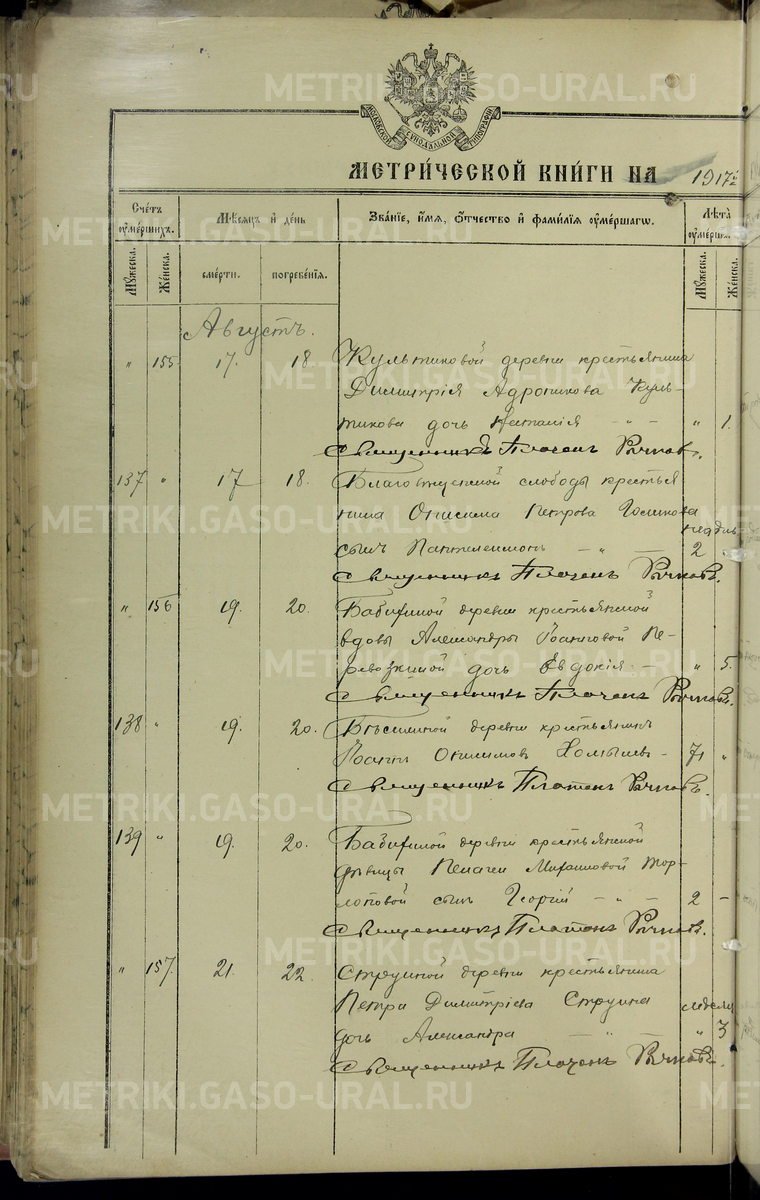 МОСКОВСКОЙ СѴНОДАЛЬНОЙ ТИПОГРАФІИ
МЕТРИ́ЧЕСКОЙ КНИ́ГИ НА 1917 г.
Сче́тъ оу҆ме́ршихъ.
Мѣ́сѧцъ и҆ де́нь
Зва́нїе, и҆́мѧ, ѻ҆́тчество и҆ фами́лїѧ оу҆ме́ршагѡ.
Лѣ́та оу҆ме́рш
Мꙋ́жеска.
Же́нска.
сме́рти.
погребе́нїѧ.
Мꙋ́жеска.
Же́нска.
Августъ.
" 155 17. 18 Культиковой деревни крестьянина
Димитрія Адроникова Куль-
тикова дочь Наталія - " - " 1.
Священникъ Платонъ Рычковъ.
137 " 17 18. Благовѣщенской слободы крестья
нина Онисима Петрова Голикова недѣль
сынъ Пантелеимонъ - " - 2 "
Священникъ Платонъ Рычковъ.
" 156 19. 20. Бабихиной деревни крестьянской
вдовы Александры Іоанновой Пе-
ревозкиной дочь Евдокія - " 5.
Священникъ Платонъ Рычковъ.
138 " 19. 20. деревни крестьянинъ
Іоаннъ Онисимовъ - 71 "
Священникъ Платонъ Рычковъ.
139 " 19. 20. Бабихиной деревни крестьянской
дѣвицы Пелагеи
сынъ Георгій - " - 2 -
Священникъ Платонъ Рычковъ.
" 157. 21. 22. Струиной деревни крестьянина
Петра Димитріева Струина недѣли
дочь Александра - " - " 3
Священникъ Платонъ Рычковъ.
METRIKI.GASO-URAL.RU